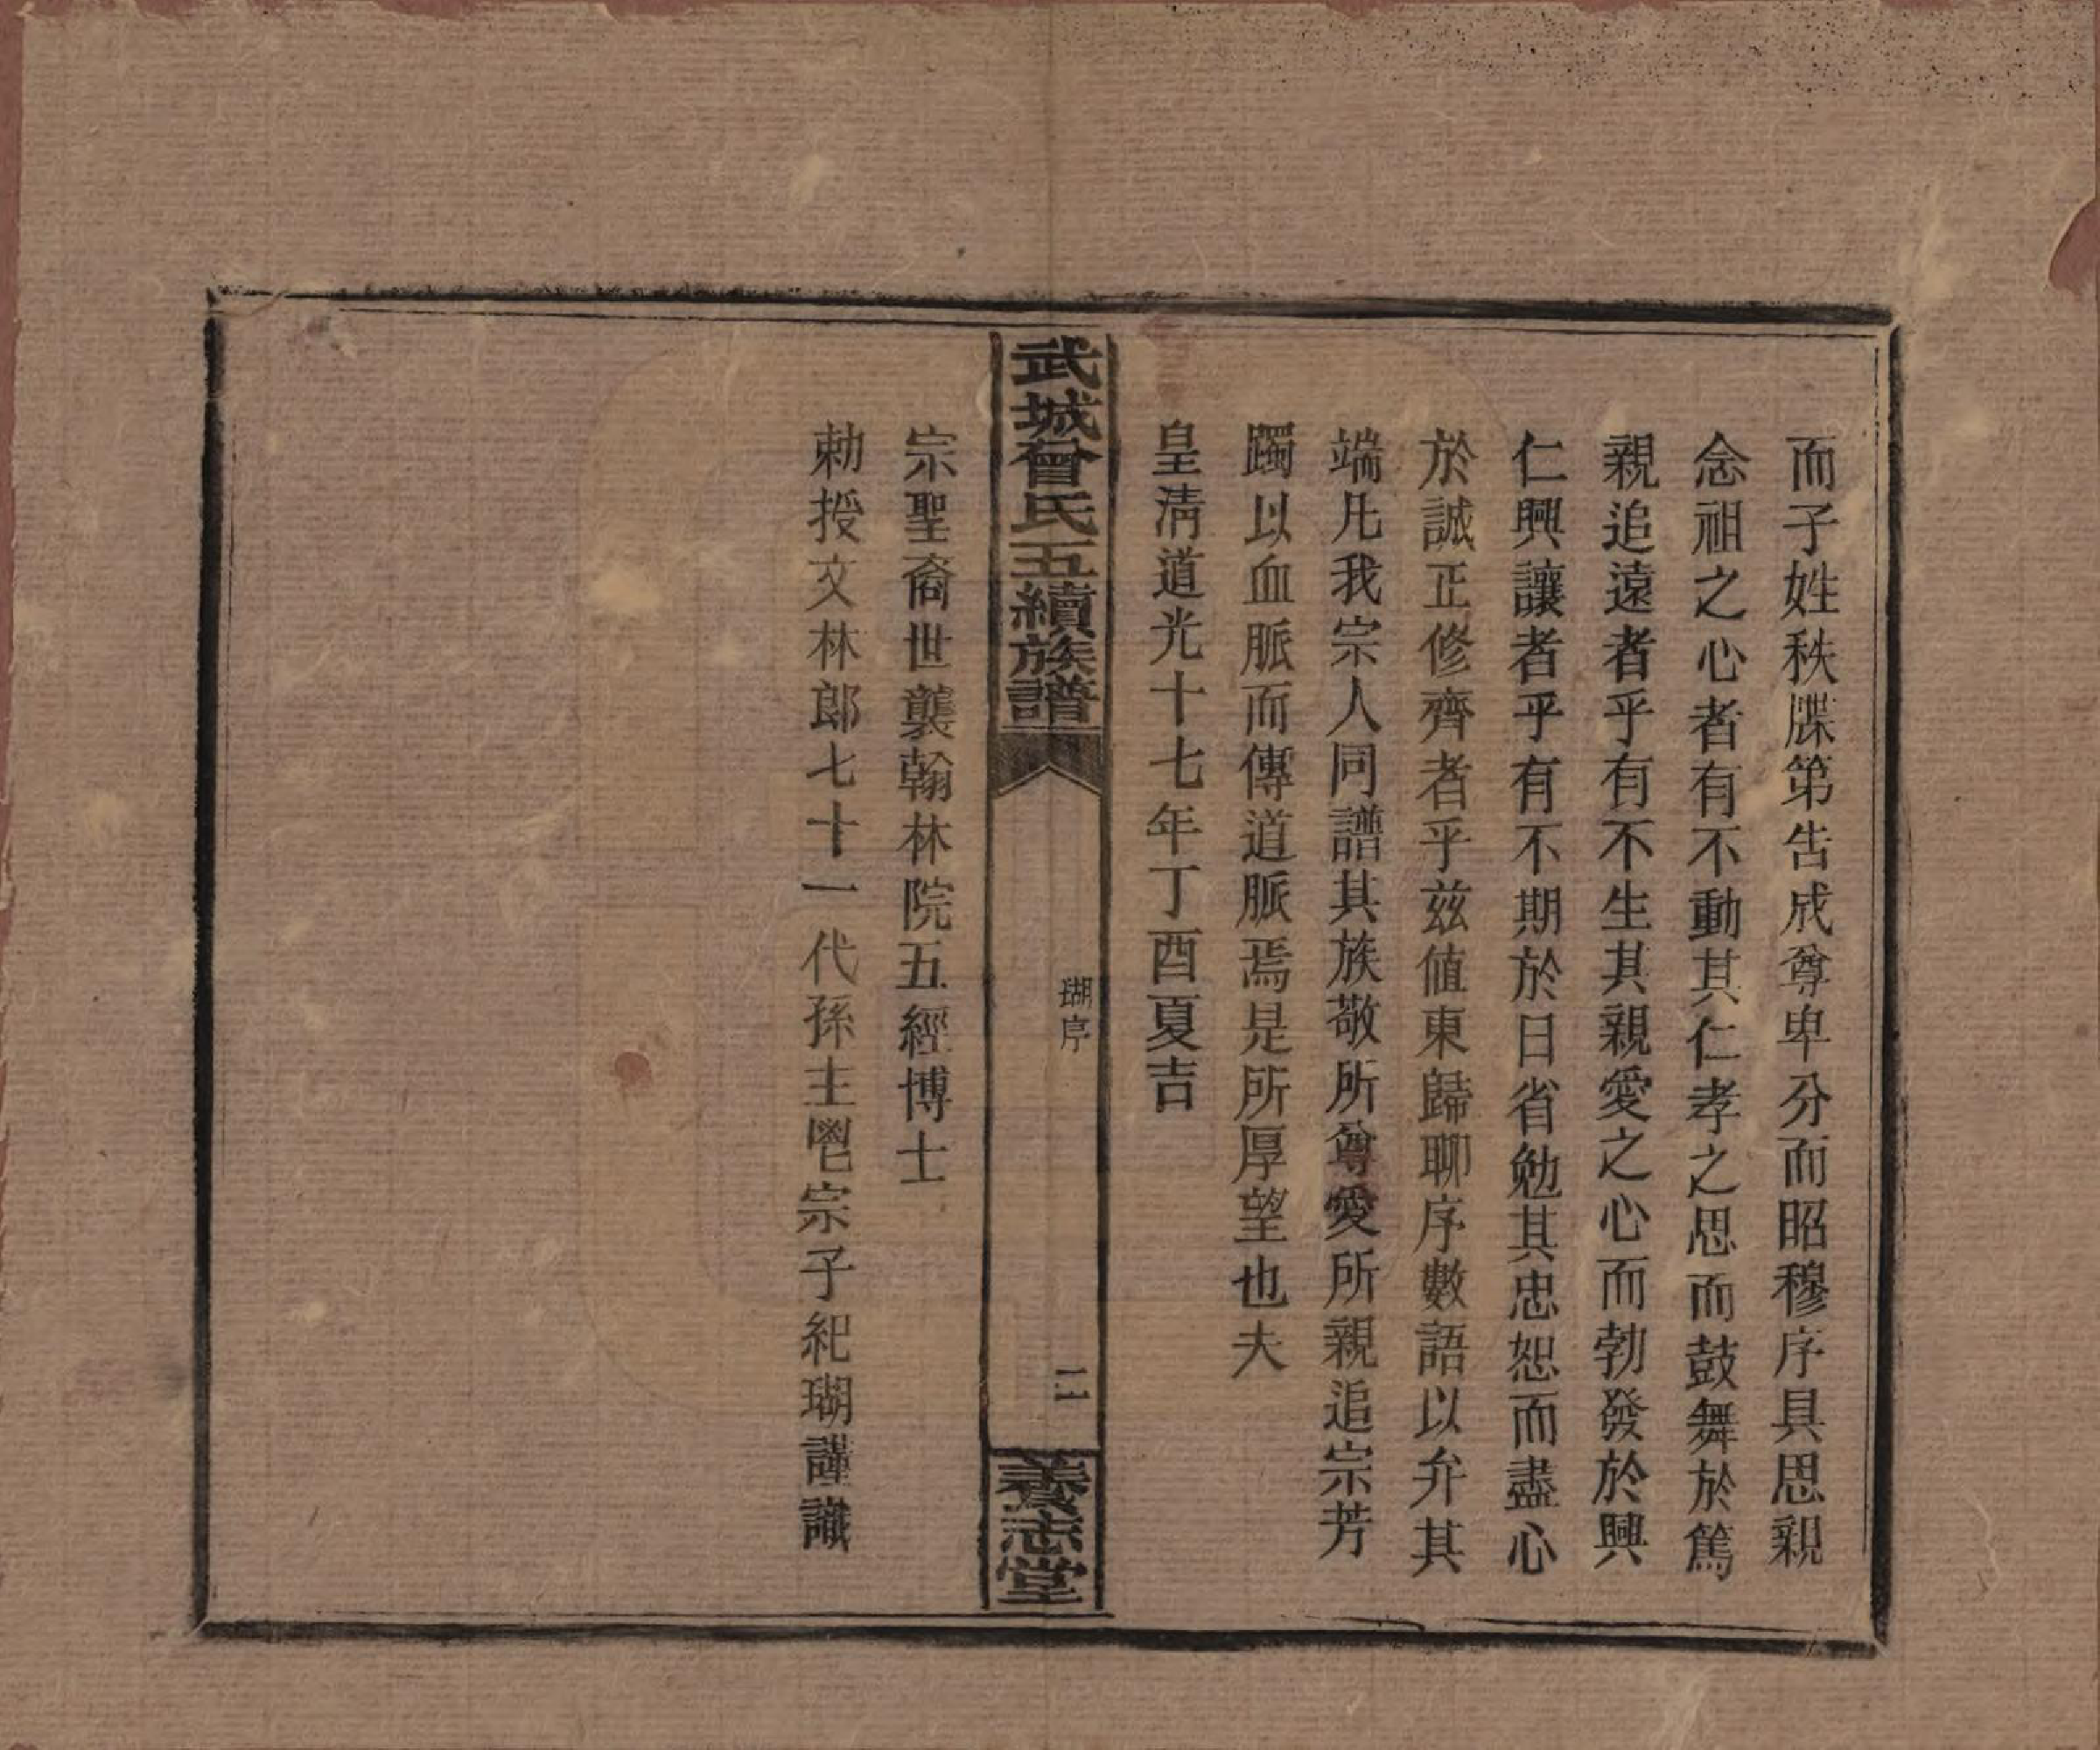 而子姓秩牒第告成尊卑分而昭穆序具思親
念祖之心者有不動其仁孝之思而鼓舞於篤
親追遠者乎有不生其親愛之心而勃發於興
仁興讓者乎有不期於日省勉其忠恕而盡心
於誠正修齊者乎兹值東歸聊序數語以弁其
端凡我宗人同譜其族敬所尊愛所親追宗芳
躅以血脈而傳道脈焉是所厚望也夫
皇淸道光十七年丁酉夏吉
武城曾氏五續族譜
瑚序
二
養志堂
宗聖裔世襲翰林院五經博士
勅授文林郎七十一代孫主鬯宗子紀瑚謹識